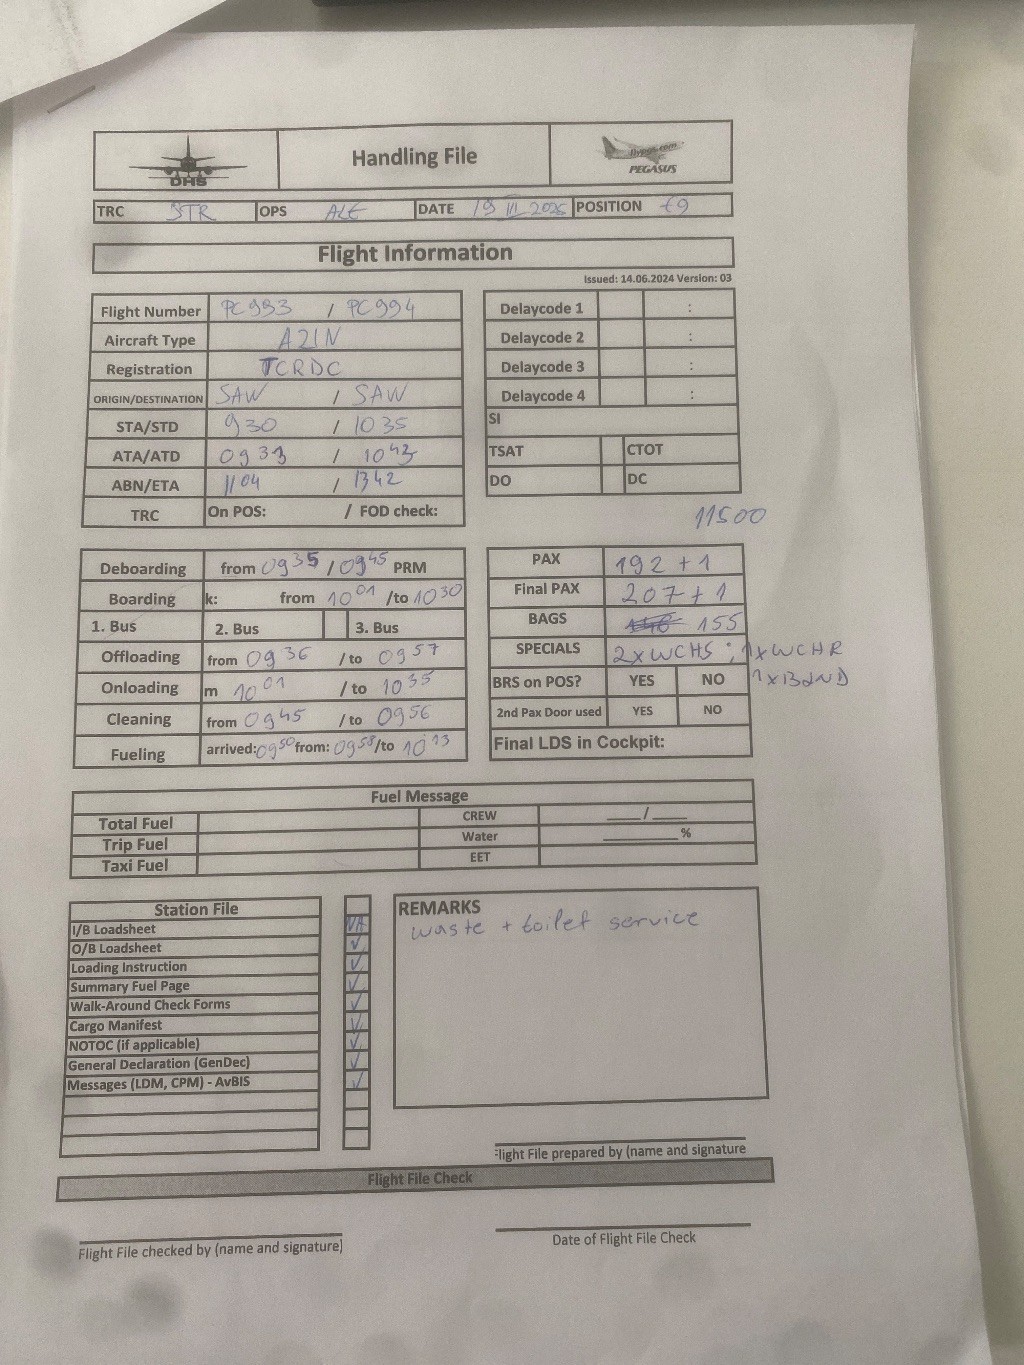 DHS
Handling File
flypgs.com
PEGASUS
TRC STR OPS ALE DATE 19 III 2025 POSITION
Flight Information
Issued: 14.06.2024 Version: 03
Flight Number PC993 / PC994
Aircraft Type A21N
Registration TCRDC
ORIGIN/DESTINATION SAW / SAW
STA/STD 930 / 1035
ATA/ATD 0933 / 1043
ABN/ETA 1104 / 1342
TRC On POS: / FOD check:
Delaycode 1 :
Delaycode 2 :
Delaycode 3 :
Delaycode 4 :
SI
TSAT CTOT
DO DC
11500
Deboarding from 0935 / 0945 PRM
Boarding k: from 1001 /to 1030
1. Bus 2. Bus 3. Bus
Offloading from 0936 /to 0957
Onloading m 1001 /to 1035
Cleaning from 0945 /to 0956
Fueling arrived: 0950 from: 0958 /to 1013
PAX 192 + 1
Final PAX 207 + 1
BAGS 155
SPECIALS 2xWCHS ; 1xWCHR
1xBLND
BRS on POS? YES NO
2nd Pax Door used YES NO
Final LDS in Cockpit:
Fuel Message
Total Fuel CREW ___/___
Trip Fuel Water ______%
Taxi Fuel EET
Station File
I/B Loadsheet NA
O/B Loadsheet ✓
Loading Instruction ✓
Summary Fuel Page ✓
Walk-Around Check Forms ✓
Cargo Manifest ✓
NOTOC (if applicable) ✓
General Declaration (GenDec) ✓
Messages (LDM, CPM) - AvBIS ✓
REMARKS
waste + toilet service
Flight File prepared by (name and signature
Flight File Check
Flight File checked by (name and signature)
Date of Flight File Check